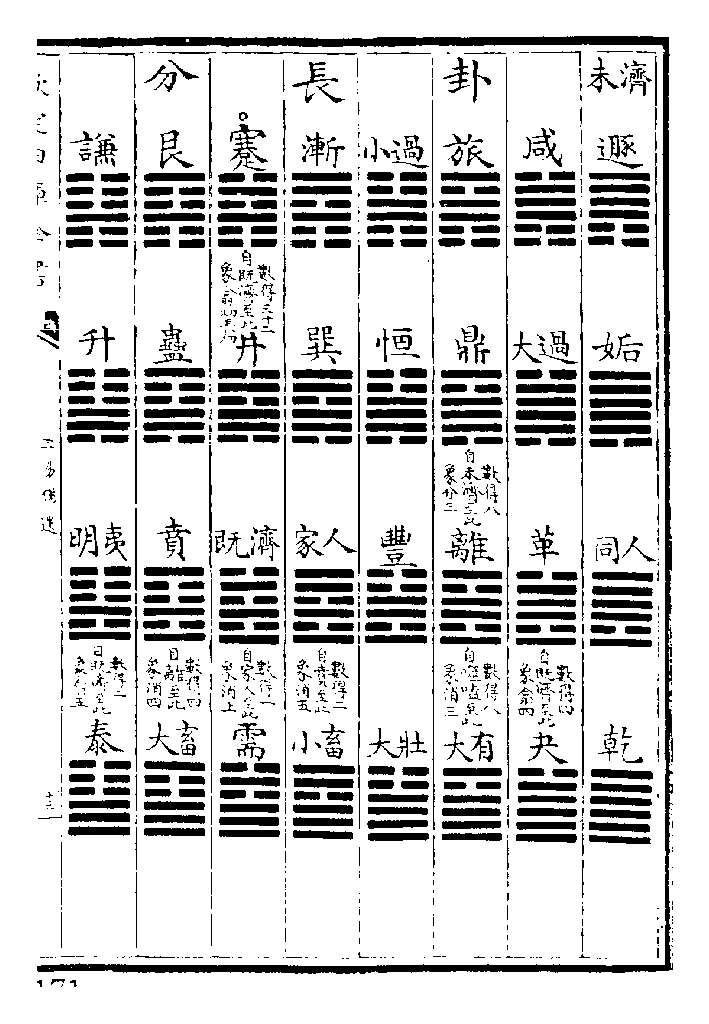 未濟
遯
姤
同人
乾
咸
大過
革
數得四
自既濟至此
象翕四
夬
卦
旅
鼎
數得八
自未濟至此
象分三
離
數得八
自噬嗑至此
象消三
大有
小過
恒
豐
大壯
長
漸
巽
家人
數得二
自賁至此
象消五
小畜
蹇
數得三十二
自既濟至此
井
既濟
數得一
自家人至此
象消上
需
分
艮
蠱
賁
數得四
自離至此
象消四
大畜
謙
升
明夷
數得二
自既濟至此
泰
欽定四庫全書
三易備遺
十三